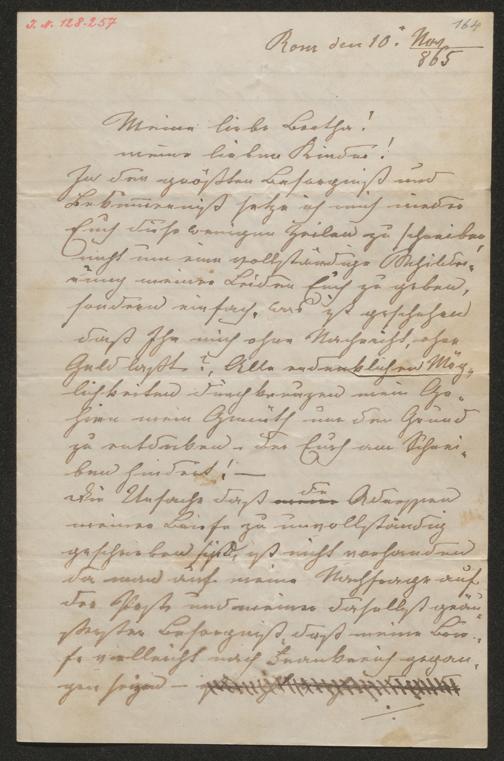 J. N. 128.257
164
Rom den 10t. Nov.
865
Meine liebe Bertha!
meine lieben Kinder!
In der größten Besorgniß und
Bekümmerniß setze ich mich nieder
Euch diese wenigen Zeilen zu schreiben,
nicht um eine vollständige Schilder-
rung meiner Leiden Euch zu geben,
sondern einfach, was ist geschehen
daß Ihr mich ohne Nachricht, ohne
Geld laßt?, Alle erdenklichen Mög-
lichkeiten durchkreuzen mein Ge-
hirn mein Gemüth um den Grund
zu entdecken, der Euch am Schrei-
ben hindert! —
Die Ursache daß die Adressen
meiner Briefe zu unvollständig
geschrieben sind, ist nicht vorhanden
da man auf meine Nachfrage auf
der Post und meiner daselbst geäu-
ßerten Besorgniß, daß meine Brie-
fe vielleicht nach Frankreich gegan-
gen seyen —